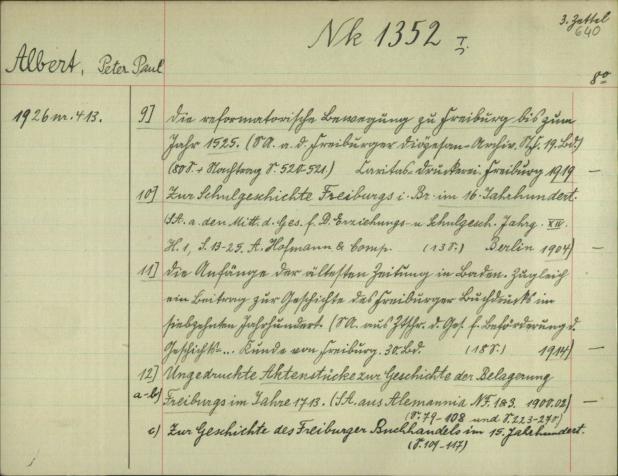 3. Zettel
640
Nk 1352 I
Albert, Peter Paul
8°
1926 nr. 413.
9] Die reformatorische Bewegung zu Freiburg bis zum
Jahr 1525. (SA. a. d. Freiburger Diözesan-Archiv. N.F. 19. Bd.)
(80 S. + Nachtrag S. 520-521.) Caritas-Druckerei Freiburg 1919 —
10] Zur Schulgeschichte Freiburgs i. Br. im 16. Jahrhundert.
(SA. a. den Mitt. d. Ges. f. D. Erziehungs- u. Schulgesch. Jahrg. XIV.
H. 1, S. 13-25. A. Hofmann & Comp. (13 S.) Berlin 1904) —
11] Die Anfänge der ältesten Zeitung in Baden. Zugleich
ein Beitrag zur Geschichte des Freiburger Buchdrucks im
siebzehnten Jahrhundert. (SA. aus Ztschr. d. Ges. f. Beförderung d.
Geschichts-... Kunde von Freiburg. 30. Bd. (18 S.) 1914) —
12] Ungedruckte Aktenstücke zur Geschichte der Belagerung
a-b) Freiburgs im Jahre 1713. (SA. aus Alemannia N.F. 1&3. 1900.02) —
(S. 79-108 und S. 223-278)
c) Zur Geschichte des Freiburger Buchhandels im 15. Jahrhundert.
(S. 109-117)